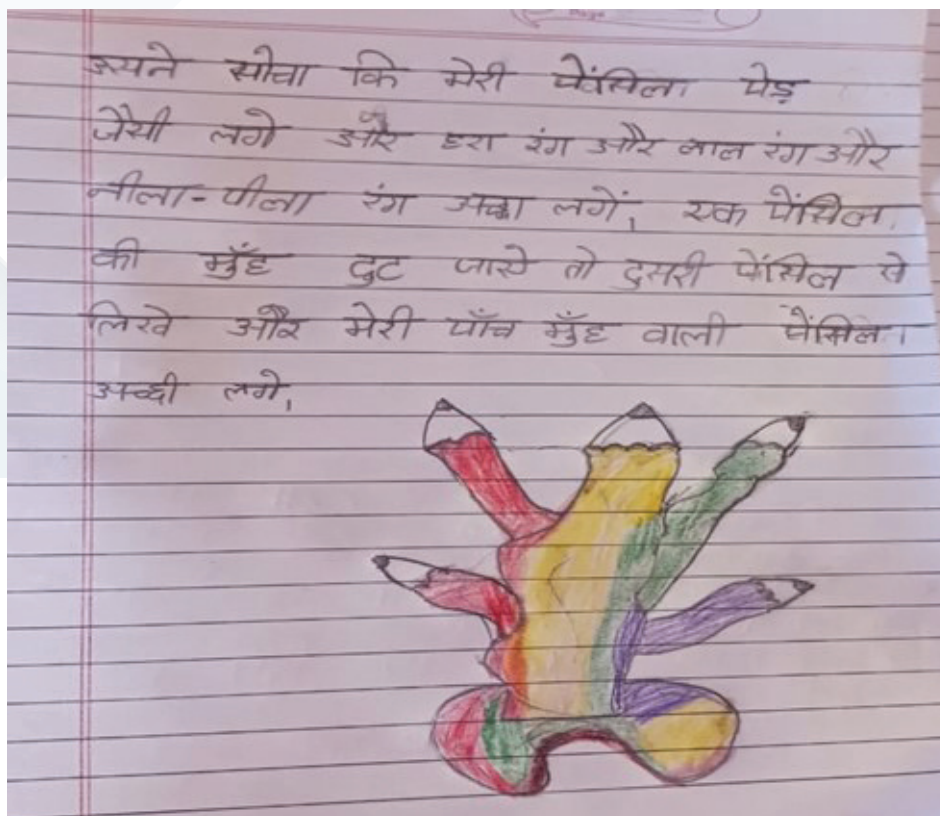 उसने सोचा कि मेरी पेंसिल। पेड़
जैसी लगे और हरा रंग और लाल रंग और
नीला-पीला रंग अच्छा लगें, एक पेंसिल,
की मुँह टुट जाये तो दुसरी पेंसिल से
लिखे और मेरी पाँच मुँह वाली पेंसिल।
अच्छी लगे,